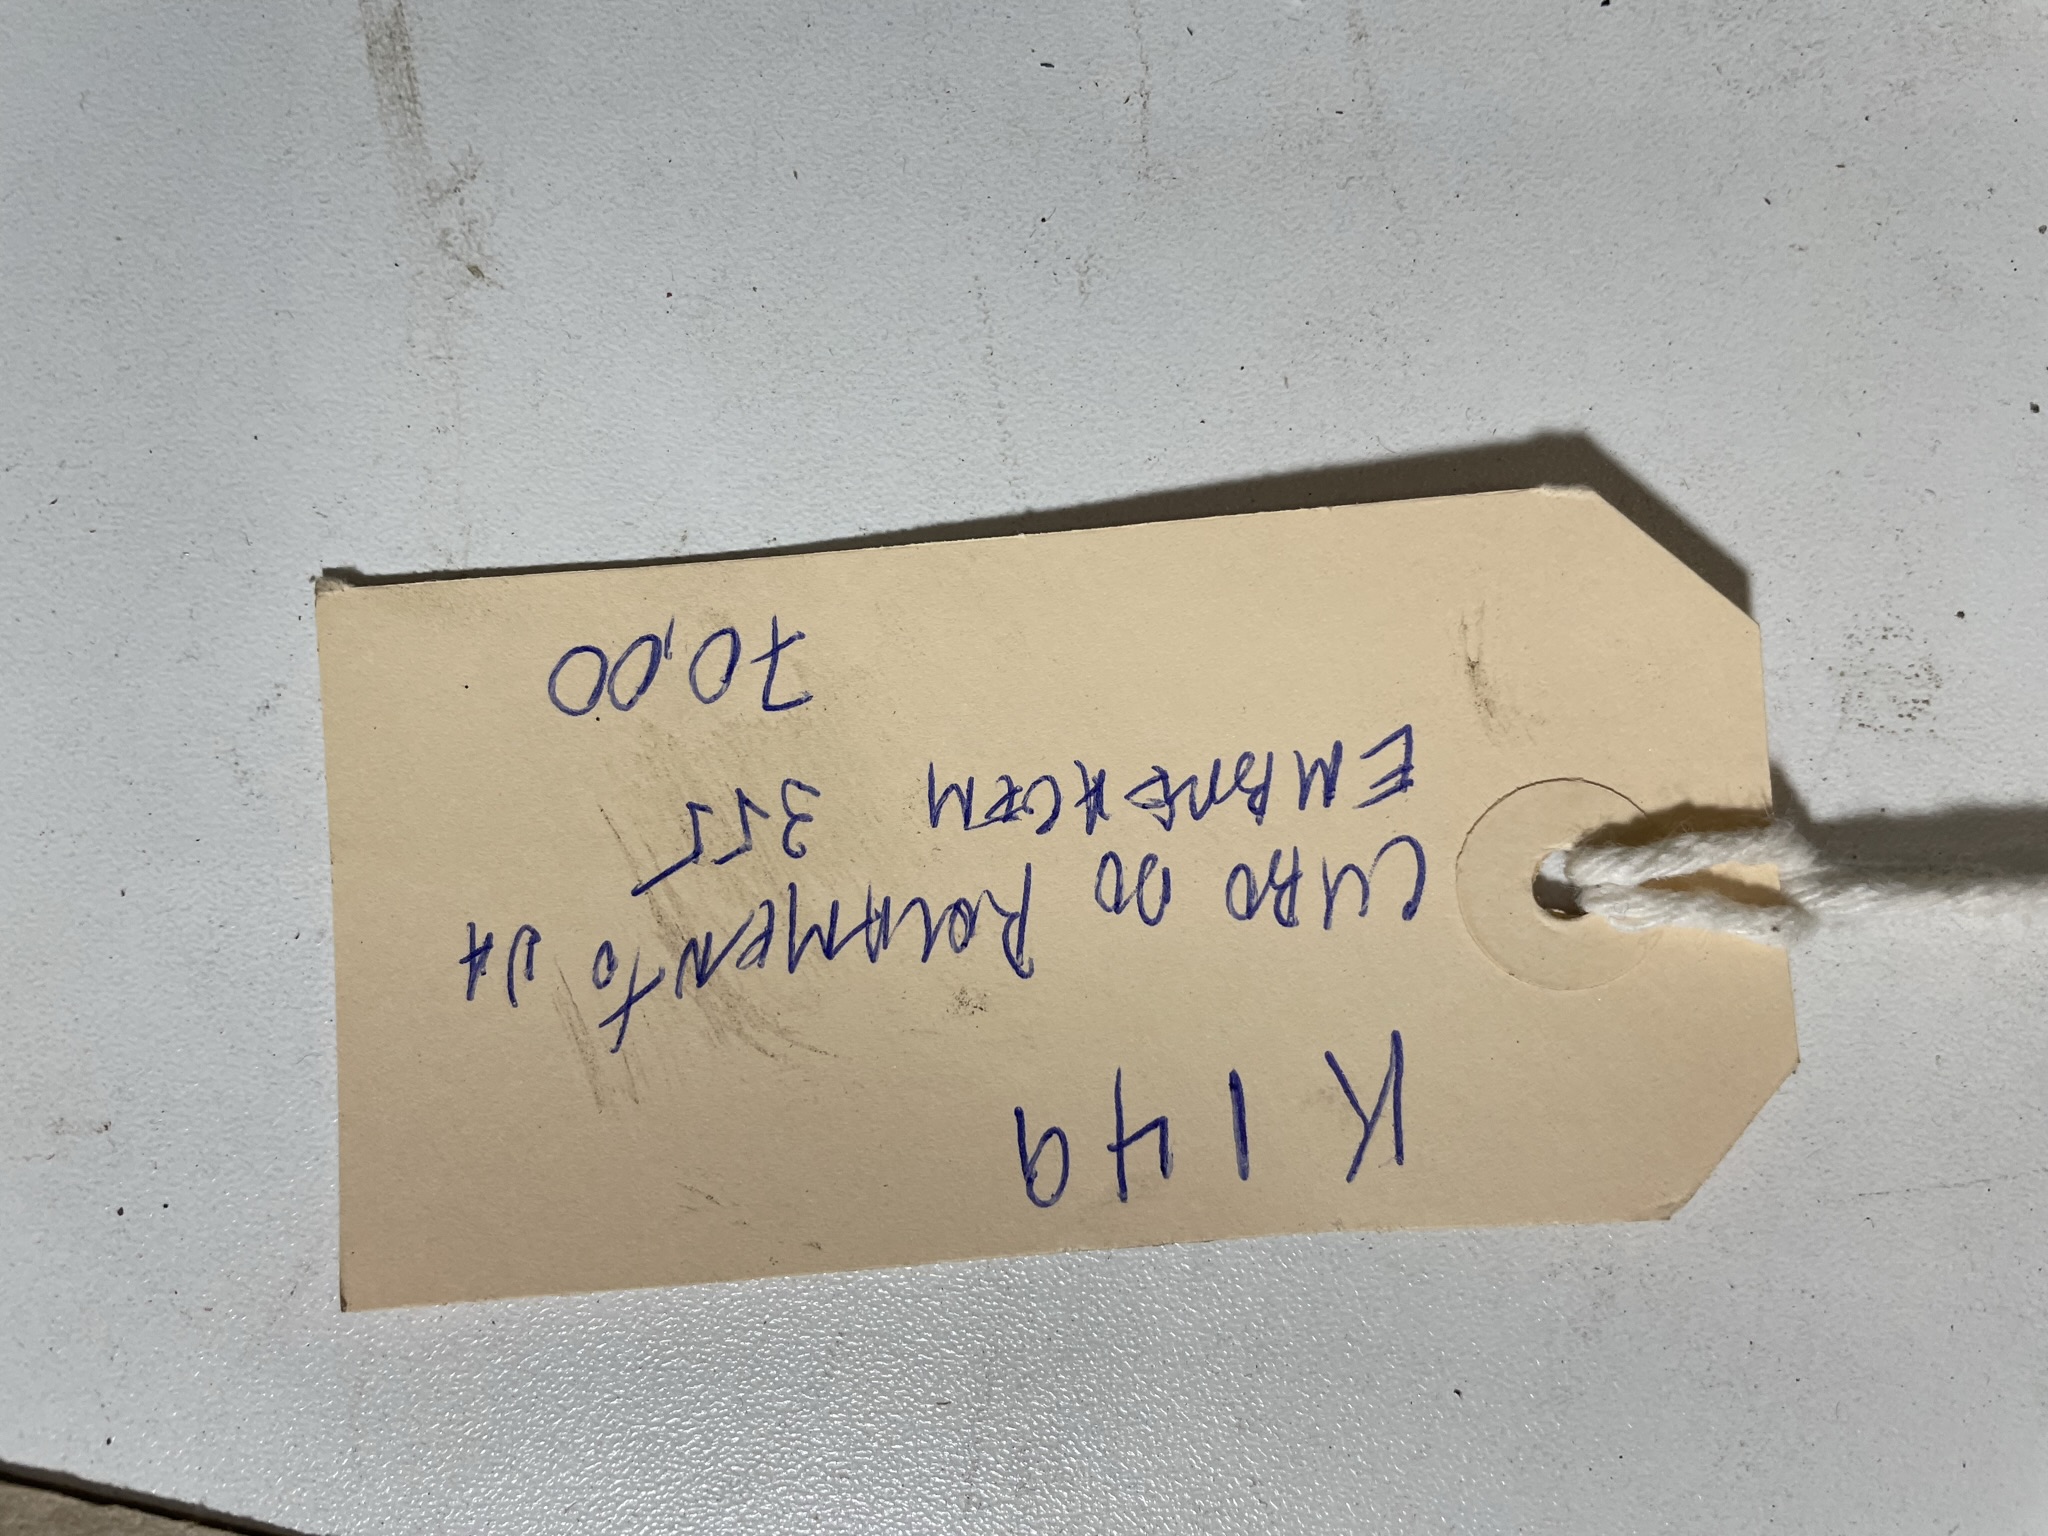 K149
CUBO DO ROLAMENTO DA
EMBREAGEM 355
70,00